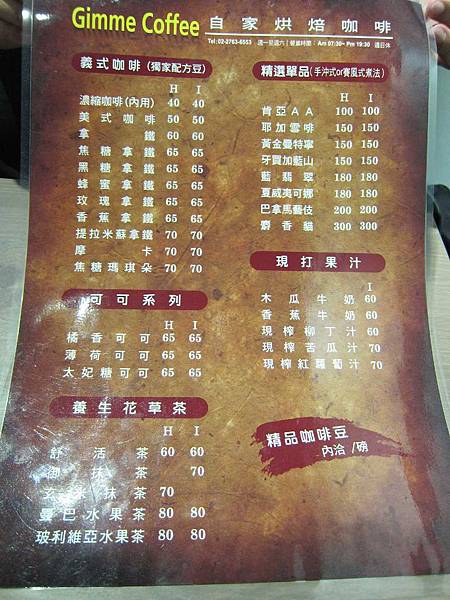 Gimme Coffee 自家烘焙咖啡
Tel:02-2763-6553 週一至週六 | 營業時間 : Am 07:30~ Pm 19:30 週日休
義式咖啡(獨家配方豆)
H I
濃縮咖啡(內用) 40 40
美式咖啡 50 50
拿鐵 60 60
焦糖拿鐵 65 65
黑糖拿鐵 65 65
蜂蜜拿鐵 65 65
玫瑰拿鐵 65 65
香蕉拿鐵 65 65
提拉米蘇拿鐵 70 70
摩卡 70 70
焦糖瑪琪朵 70 70
可可系列
H I
橘香可可 65 65
薄荷可可 65 65
太妃糖可可 65 65
養生花草茶
H I
舒活茶 60 60
御抹茶 70
玄米抹茶 70
曼巴水果茶 80 80
玻利維亞水果茶 80 80
精選單品(手沖式or賽風式煮法)
H I
肯亞AA 100 100
耶加雪啡 150 150
黃金曼特寧 150 150
牙買加藍山 150 150
藍翡翠 180 180
夏威夷可娜 180 180
巴拿馬藝伎 200 200
麝香貓 300 300
現打果汁
I
木瓜牛奶 60
香蕉牛奶 60
現榨柳丁汁 60
現榨苦瓜汁 70
現榨紅蘿蔔汁 70
精品咖啡豆
內洽 /磅